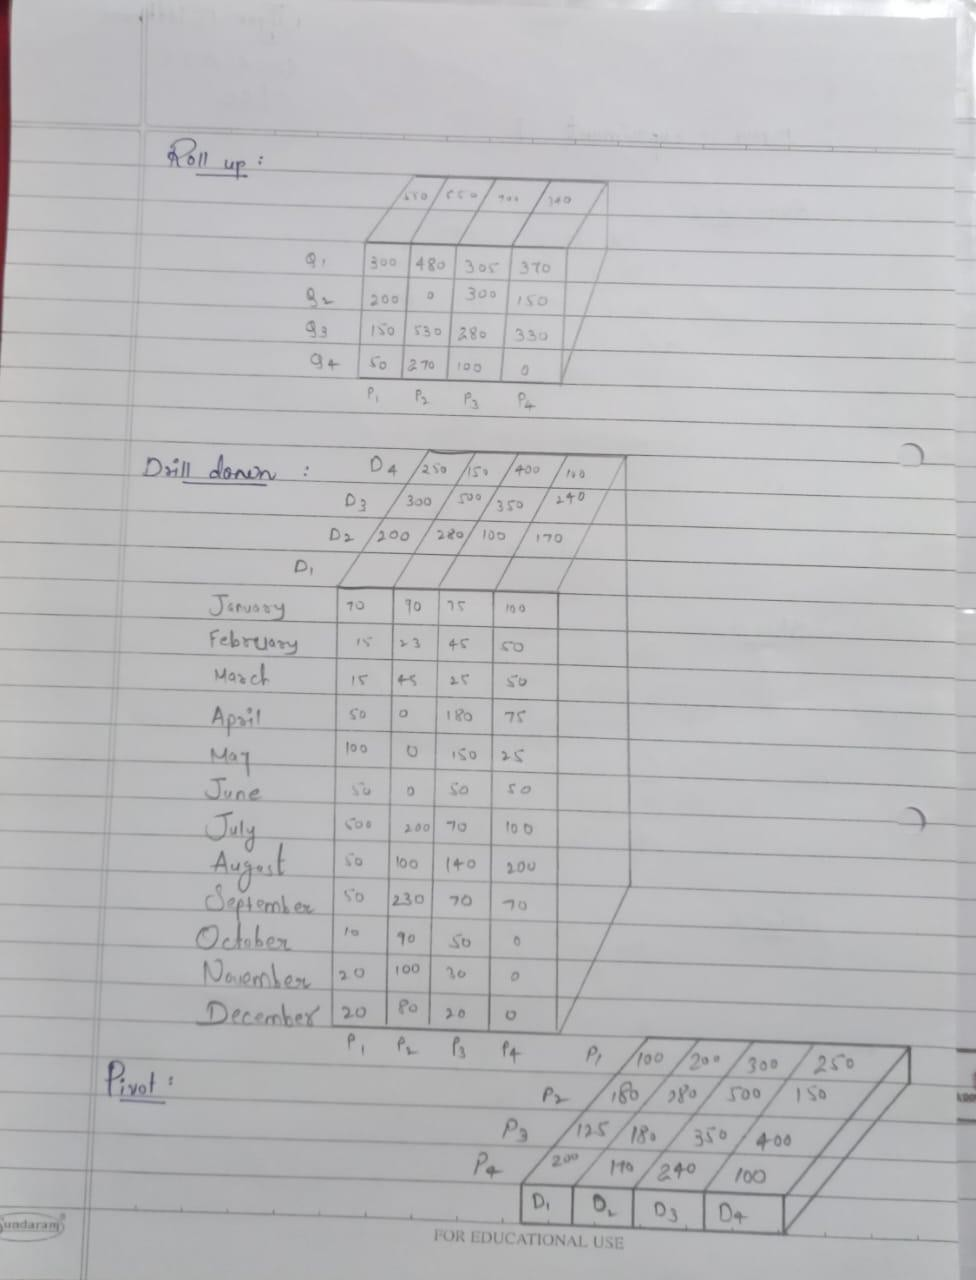 Roll up :
550 650 700 340
Q1 300 480 305 370
Q2 200 0 300 150
Q3 150 530 280 330
Q4 50 270 100 0
P1 P2 P3 P4
Drill down :
D4 250 150 400 100
D3 300 500 350 240
D2 200 280 100 170
D1
January 70 90 75 100
February 15 23 45 50
March 15 45 25 50
April 50 0 180 75
May 100 0 150 25
June 50 0 50 50
July 500 200 70 100
August 50 100 140 200
September 50 230 70 70
October 10 90 50 0
November 20 100 30 0
December 20 80 20 0
P1 P2 P3 P4
Pivot :
P1 100 200 300 250
P2 180 280 500 150
P3 125 180 350 400
P4 200 170 240 100
D1 D2 D3 D4
Sundaram
FOR EDUCATIONAL USE